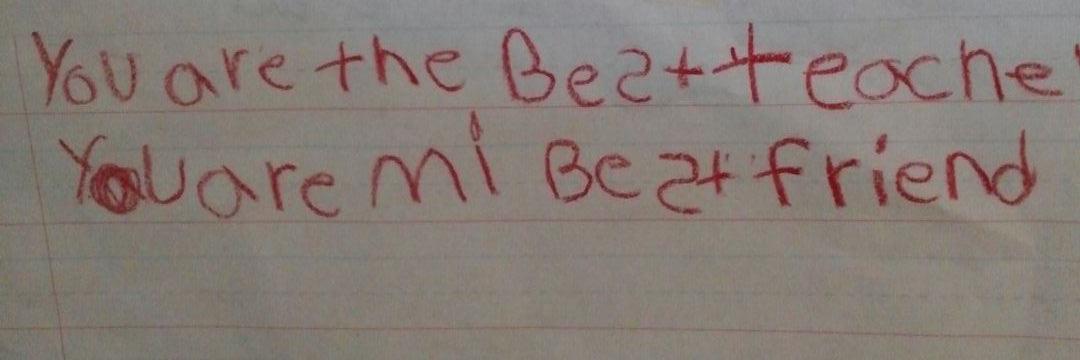 You are the Best teacher
You are mi Best friend